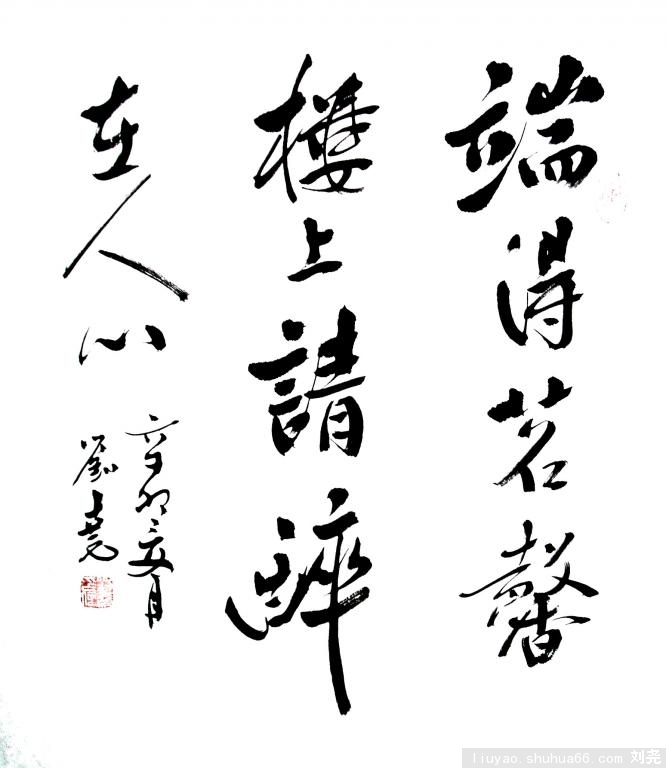 端得茗馨
樓上請醉
在人心
辛卯夏月
劉堯
liuyao.shuhua66.com 刘尧